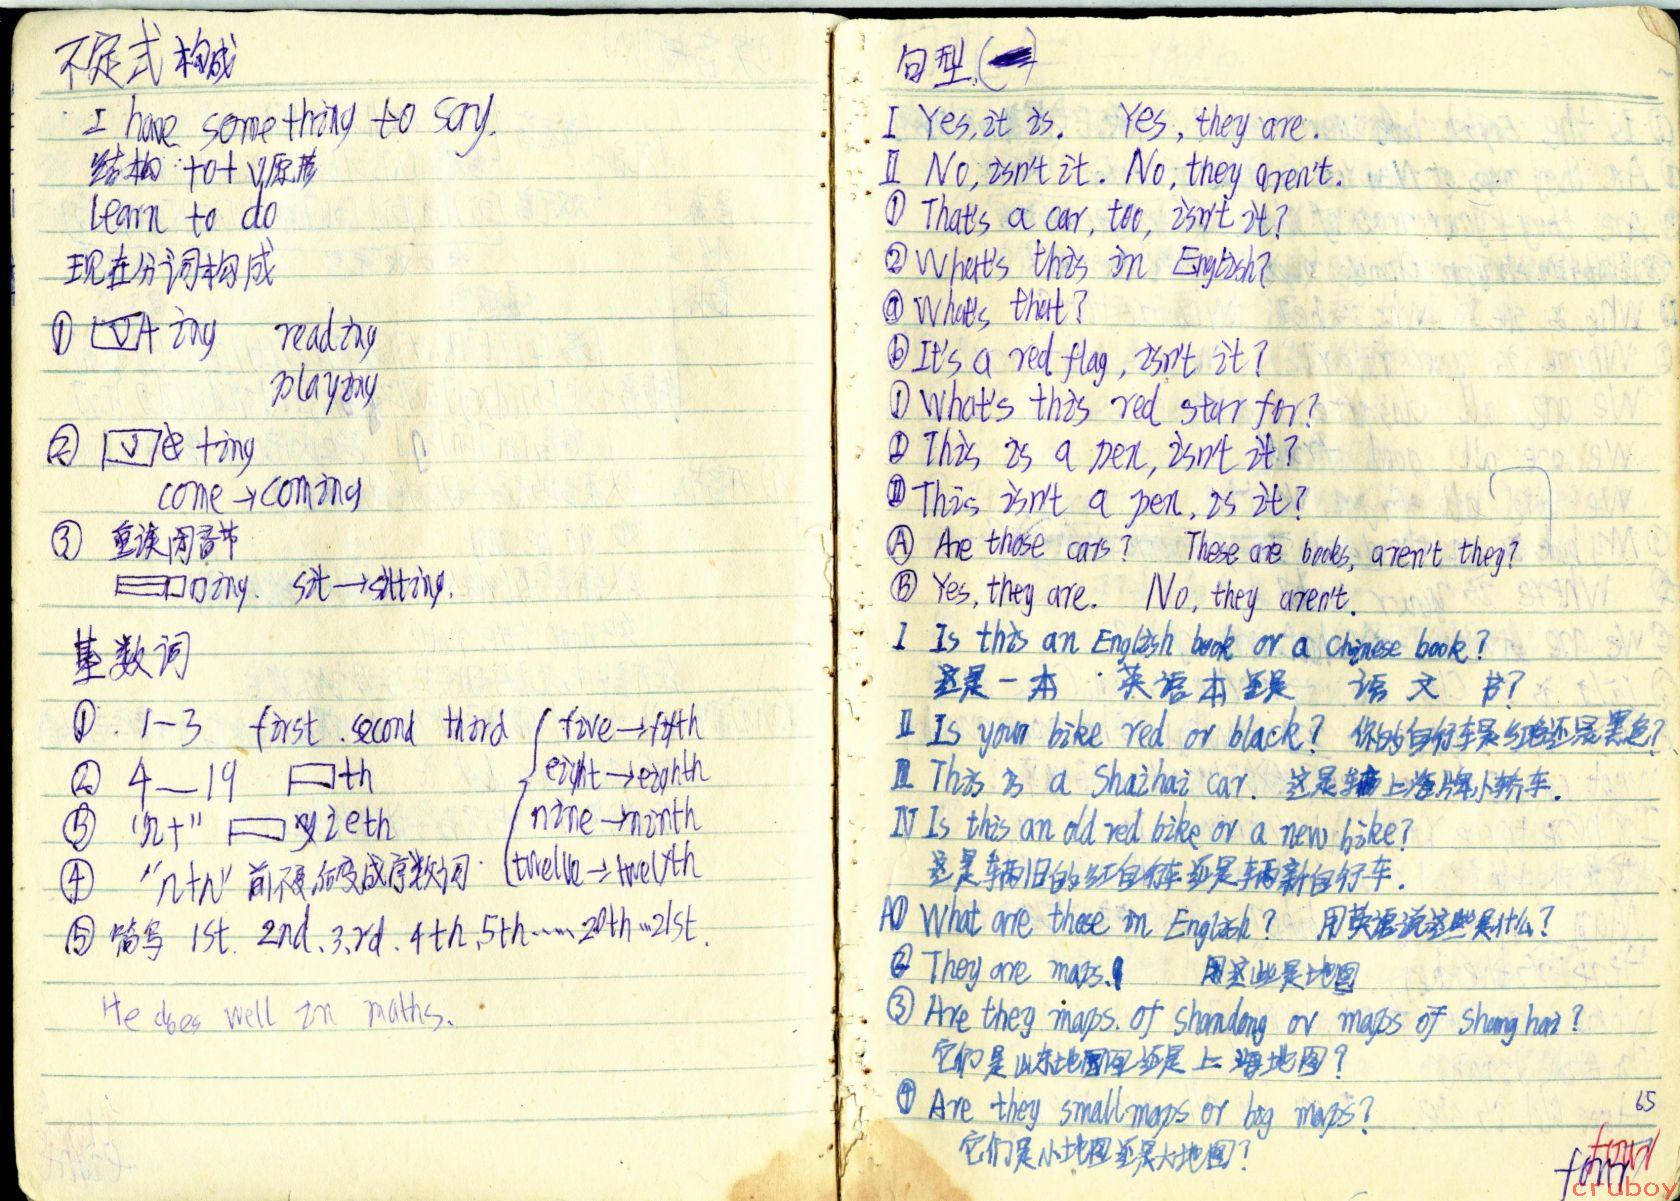 不定式构成
I have something to say.
结构:to+v原形
learn to do
现在分词构成
① V+ing reading
playing
② Ve+ing
come→coming
③ 重读闭音节
ing. sit→sitting.
基数词
①. 1—3 first. second third
five→fifth
② 4—19 th
eight→eighth
③ "n+" y ieth
nine→ninth
④ "n+n" 前不变,后变成序数词.
twelve→twelfth
⑤ 简写 1st. 2nd. 3.rd. 4th. 5th····· 20th···21st.
He does well in maths.
句型.(一)
I Yes, it is. Yes, they are.
II No, isn't it. No, they aren't.
① That's a car, too, isn't it?
② What's this in English?
ⓐ What's that?
ⓑ It's a red flag, isn't it?
① What's this red star for?
Ⅰ This is a pen, isn't it?
Ⅱ This isn't a pen, is it?
Ⓐ Are those cars? These are books, aren't they?
Ⓑ Yes, they are. No, they aren't.
I Is this an English book or a Chinese book?
这是一本 英语本还是 语文 书?
II Is your bike red or black? 你的自行车是红色还是黑色?
III This is a Shaihai car. 这是辆上海牌小轿车.
IV Is this an old red bike or a new bike?
这是辆旧的红自行车还是辆新自行车.
A① What are these in English? 用英语说这些是什么?
② They are maps. 这些是地图
③ Are they maps. of Shandong or maps of Shanghai?
它们是山东地图还是上海地图?
④ Are they small maps or big maps?
它们是小地图还是大地图?
65
cruboy